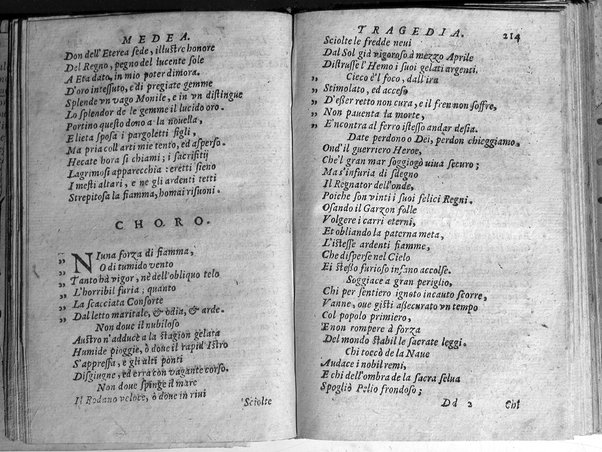 MEDEA.
Don dell'Eterea sede, illustre honore
Del Regno, pegno del lucente sole
A Eta dato, in mio poter dimora.
D'oro intessuto, e di pregiate gemme
Splende vn vago Monile, e in vn distingue
Lo splendor de le gemme il lucido oro.
Portino questo dono a la nouella,
E lieta sposa i pargoletti figli,
Ma pria coll arti mie tento, ed asperso.
Hecate hora si chiami; i sacrifitij
Lagrimosi apparecchia: eretti sieno
I mesti altari, e ne gli ardenti tetti
Strepitosa la fiamma, homai risuoni.
CHORO.
„ NIuna forza di fiamma,
„ O di tumido vento
„ Tanto hà vigor, nè dell'obliquo telo
„ L'horribil furia; quanto
„ La scacciata Consorte
„ Dal letto maritale, & odia, & arde.
Non doue il nubiloso
Austro n'adduce a la stagion gelata
Humide pioggie, ò doue il rapid' Istro
S'appressa, e gli alti ponti
Disgiugne, ed erra con vagante corso.
Non doue spinge il mare
Il Rodano veloce, ò doue in riui
Sciolte
TRAGEDIA. 214
Sciolte le fredde neui
Dal Sol già vigoroso a mezzo Aprile
Distrusse l'Hemo i suoi gelati argenti.
„ Cieco è'l foco, dall'ira
„ Stimolato, ed acceso
„ D'esser retto non cura, e il fren non soffre,
„ Non pauenta la morte,
„ E'ncontra al ferro istesso andar desia.
Date perdono o Dei, perdon chieggiamo.
Ond'il guerriero Heroe,
Che'l gran mar soggiogò uiua securo;
Mas'infuria di sdegno
Il Regnator dell'onde,
Poiche son vinti i suoi felici Regni.
Osando il Garzon folle
Volgere i carri eterni,
Et obliando la paterna meta,
L'istesse ardenti fiamme,
Che disperse nel Cielo
Ei stesso furioso insano accolse.
Soggiace a gran periglio,
Chi per sentiero ignoto incauto scorre,
Vanne, oue gisti assecurato vn tempo
Col popolo primiero,
E non rompere à forza
Del mondo stabil le sacrate leggi.
Chi roccò de la Naue
Audace i nobil remi,
E chi dell'ombra de la sacra selua
Spogliò Pelio frondoso;
Dd 2 Chi